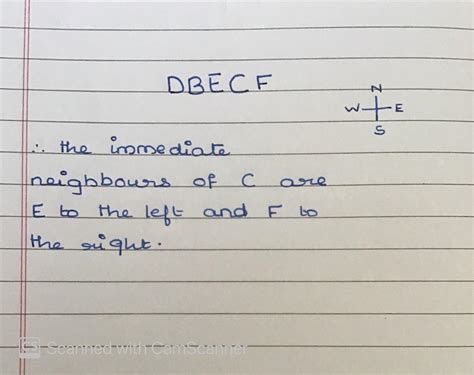 DBECF
N
W E
S
∴ the immediate
neighbours of C are
E to the left and F to
the right.
Scanned with CamScanner